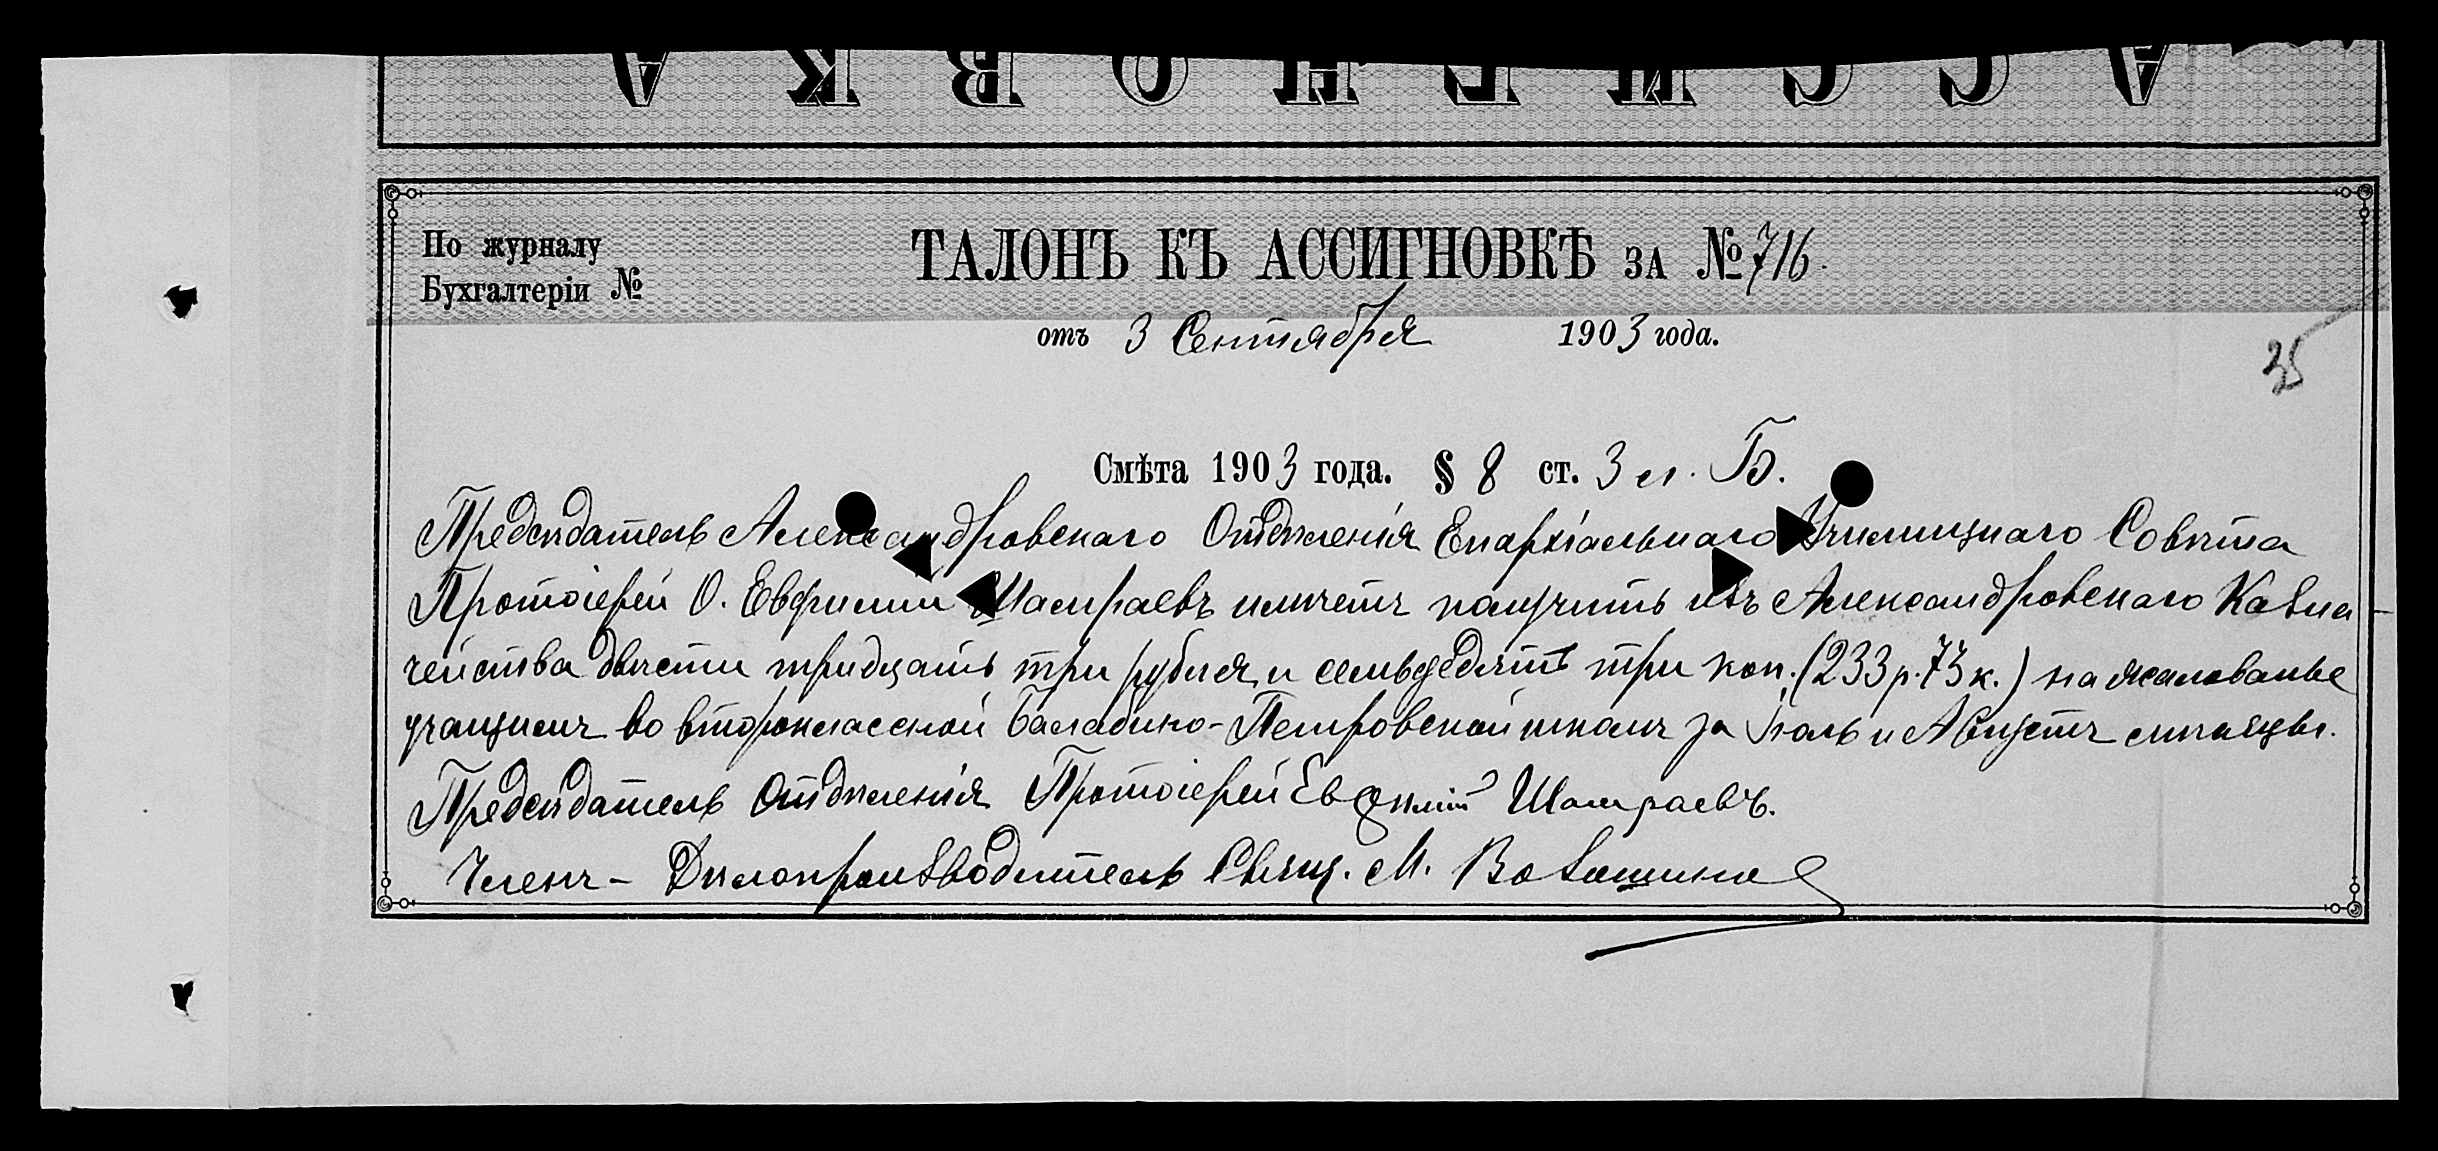 АССИГНОВКА
По журналу
Бухгалтеріи №
ТАЛОНЪ КЪ АССИГНОВКѢ ЗА № 716.
отъ 3 Сентября 1903 года.
35
Смѣта 1903 года. § 8 ст. 3 л. Б.
Предсѣдатель Александровскаго Отдѣленія Епархіальнаго Училищнаго Совѣта
Протоіерей О. Евфимій Шамраевъ имѣетъ получить изъ Александровскаго Казна-
чейства двѣсти тридцать три рубля и семьдесятъ три коп. (233 р. 73 к.) на жалованье
учащимъ во второклассной Балабино-Петровской школѣ за Іюль и Августъ мѣсяцы.
Предсѣдатель Отдѣленія Протоіерей Евфимій Шамраевъ.
Членъ - Дѣлопроизводитель Свящ. М.